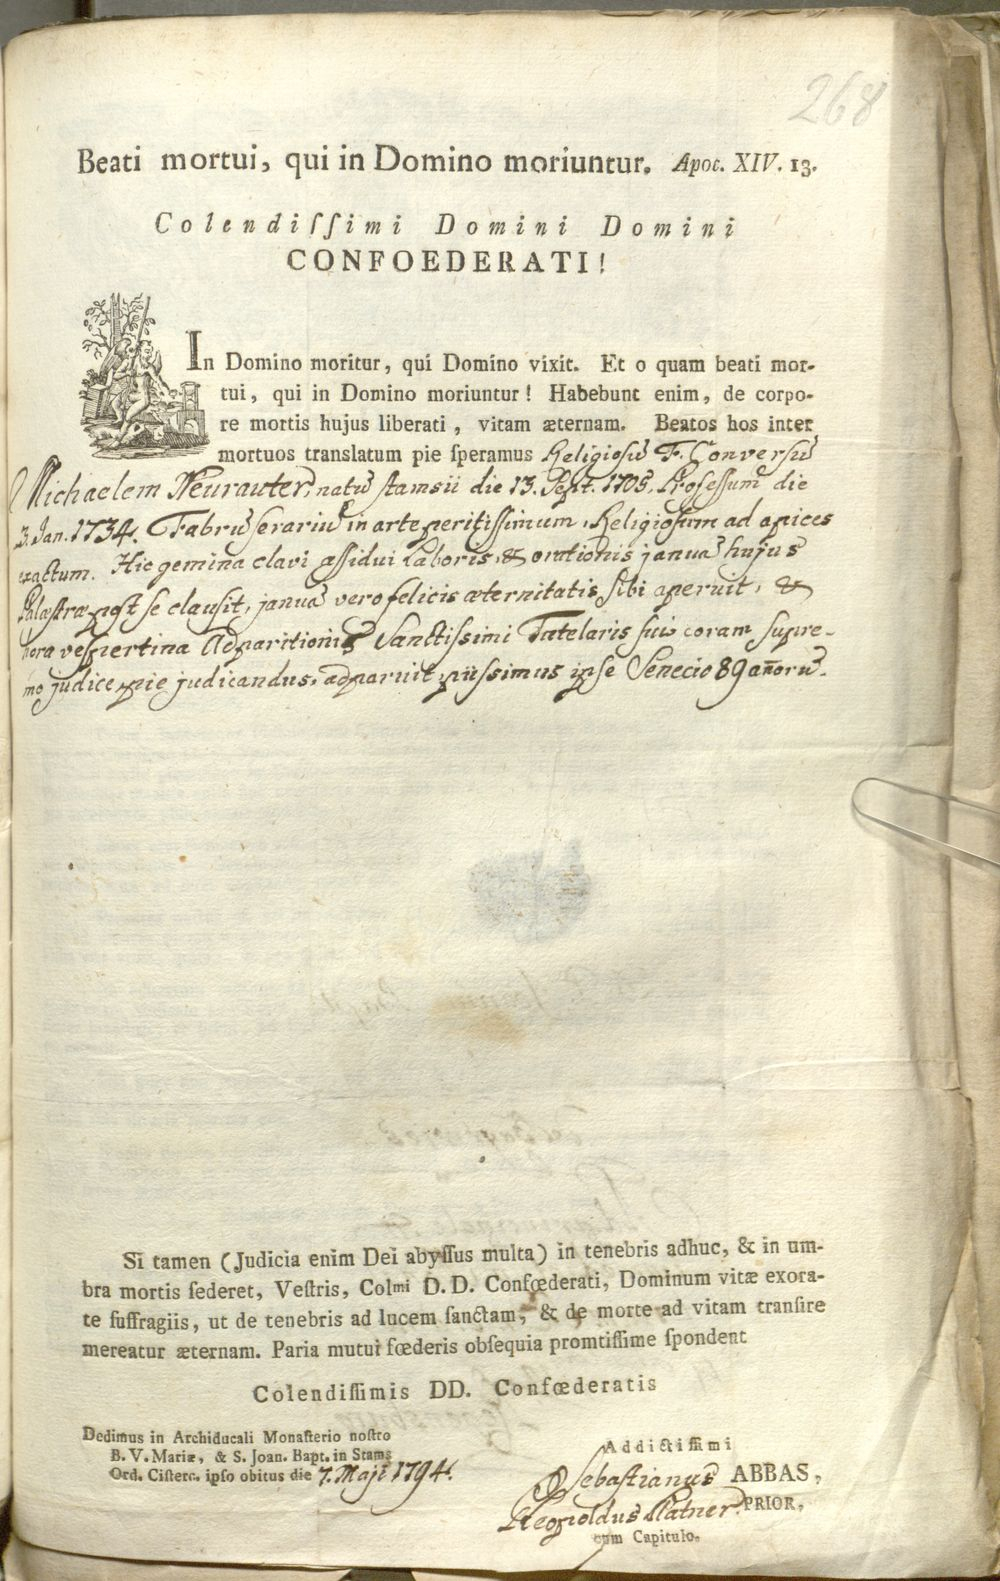 268
Beati mortui, qui in Domino moriuntur. Apoc. XIV. 13.
Colendiſſimi Domini Domini
CONFOEDERATI!
In Domino moritur, qui Domino vixit. Et o quam beati mor-
tui, qui in Domino moriuntur! Habebunt enim, de corpo-
re mortis hujus liberati, vitam æternam. Beatos hos inter
mortuos translatum pie ſperamus Religioſū F. Converſū
Michaelem Neurauter, natū Stamsii die 13. Sept. 1705. Profeſſum die
3. Jan. 1734. Fabrū ſerariū in arte peritiſſimum, Religioſum ad apices
exactum. Hic gemina clavi aſſidui Laboris, & orationis januā hujus
Palæſtræ poſt ſe clauſit, januā vero felicis æternitatis ſibi aperuit, &
hora veſpertina Adparitionis Sanctiſſimi Tutelaris ſui coram ſupre-
mo judice pie judicandus, adparuit piiſſimus ipſe Senecio 89 añorū.
Si tamen (Judicia enim Dei abyſſus multa) in tenebris adhuc, & in um-
bra mortis ſederet, Veſtris, Colmi D. D. Confœderati, Dominum vitæ exora-
te ſuffragiis, ut de tenebris ad lucem ſanctam, & de morte ad vitam tranſire
mereatur æternam. Paria mutui fœderis obſequia promtiſſime ſpondent
Colendiſſimis DD. Confœderatis
Dedimus in Archiducali Monaſterio noſtro
B. V. Mariæ, & S. Joan. Bapt. in Stams
Ord. Ciſterc. ipſo obitus die 7. Maji 1794.
Addictiſſimi
Sebaſtianus ABBAS,
Leopoldus Platner PRIOR,
cum Capitulo.